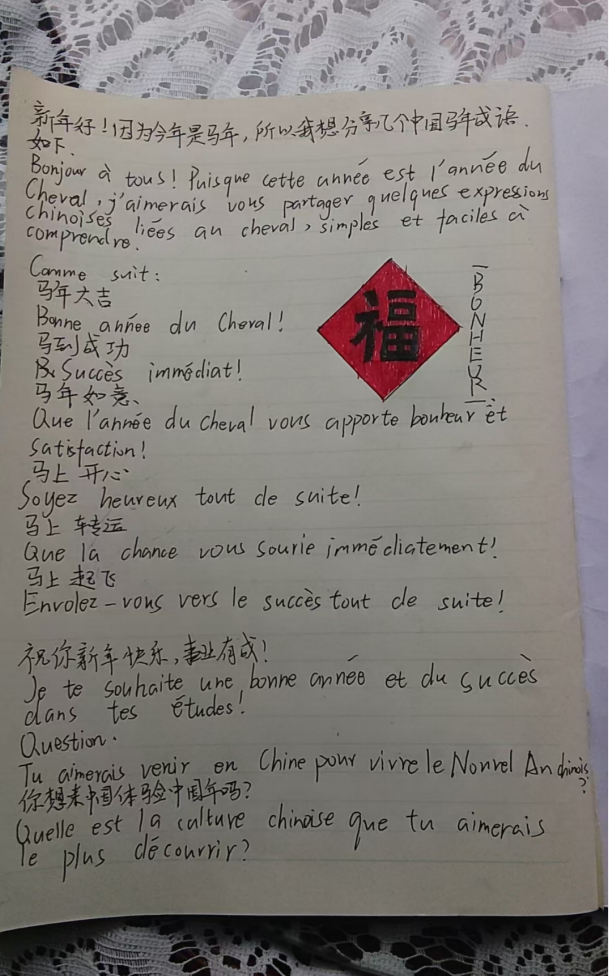 新年好！因为今年是马年，所以我想分享几个中国马年成语.
如下.
Bonjour à tous! Puisque cette année est l'année du
Cheval, j'aimerais vous partager quelques expressions
chinoises liées au cheval, simples et faciles à
comprendre.
Comme suit:
马年大吉
Bonne année du Cheval!
马到成功
Succès immédiat!
马年如意、
Que l'année du cheval vous apporte bonheur et
satisfaction!
马上 开心
Soyez heureux tout de suite!
马上 转运
Que la chance vous sourie immédiatement!
马上 起飞
Envolez-vous vers le succès tout de suite!
福
BONHEUR
祝你新年快乐，事业有成！
Je te souhaite une bonne année et du succès
dans tes études!
Question.
Tu aimerais venir en Chine pour vivre le Nouvel An chinois
?
你想来中国体验中国年吗?
Quelle est la culture chinoise que tu aimerais
le plus découvrir?